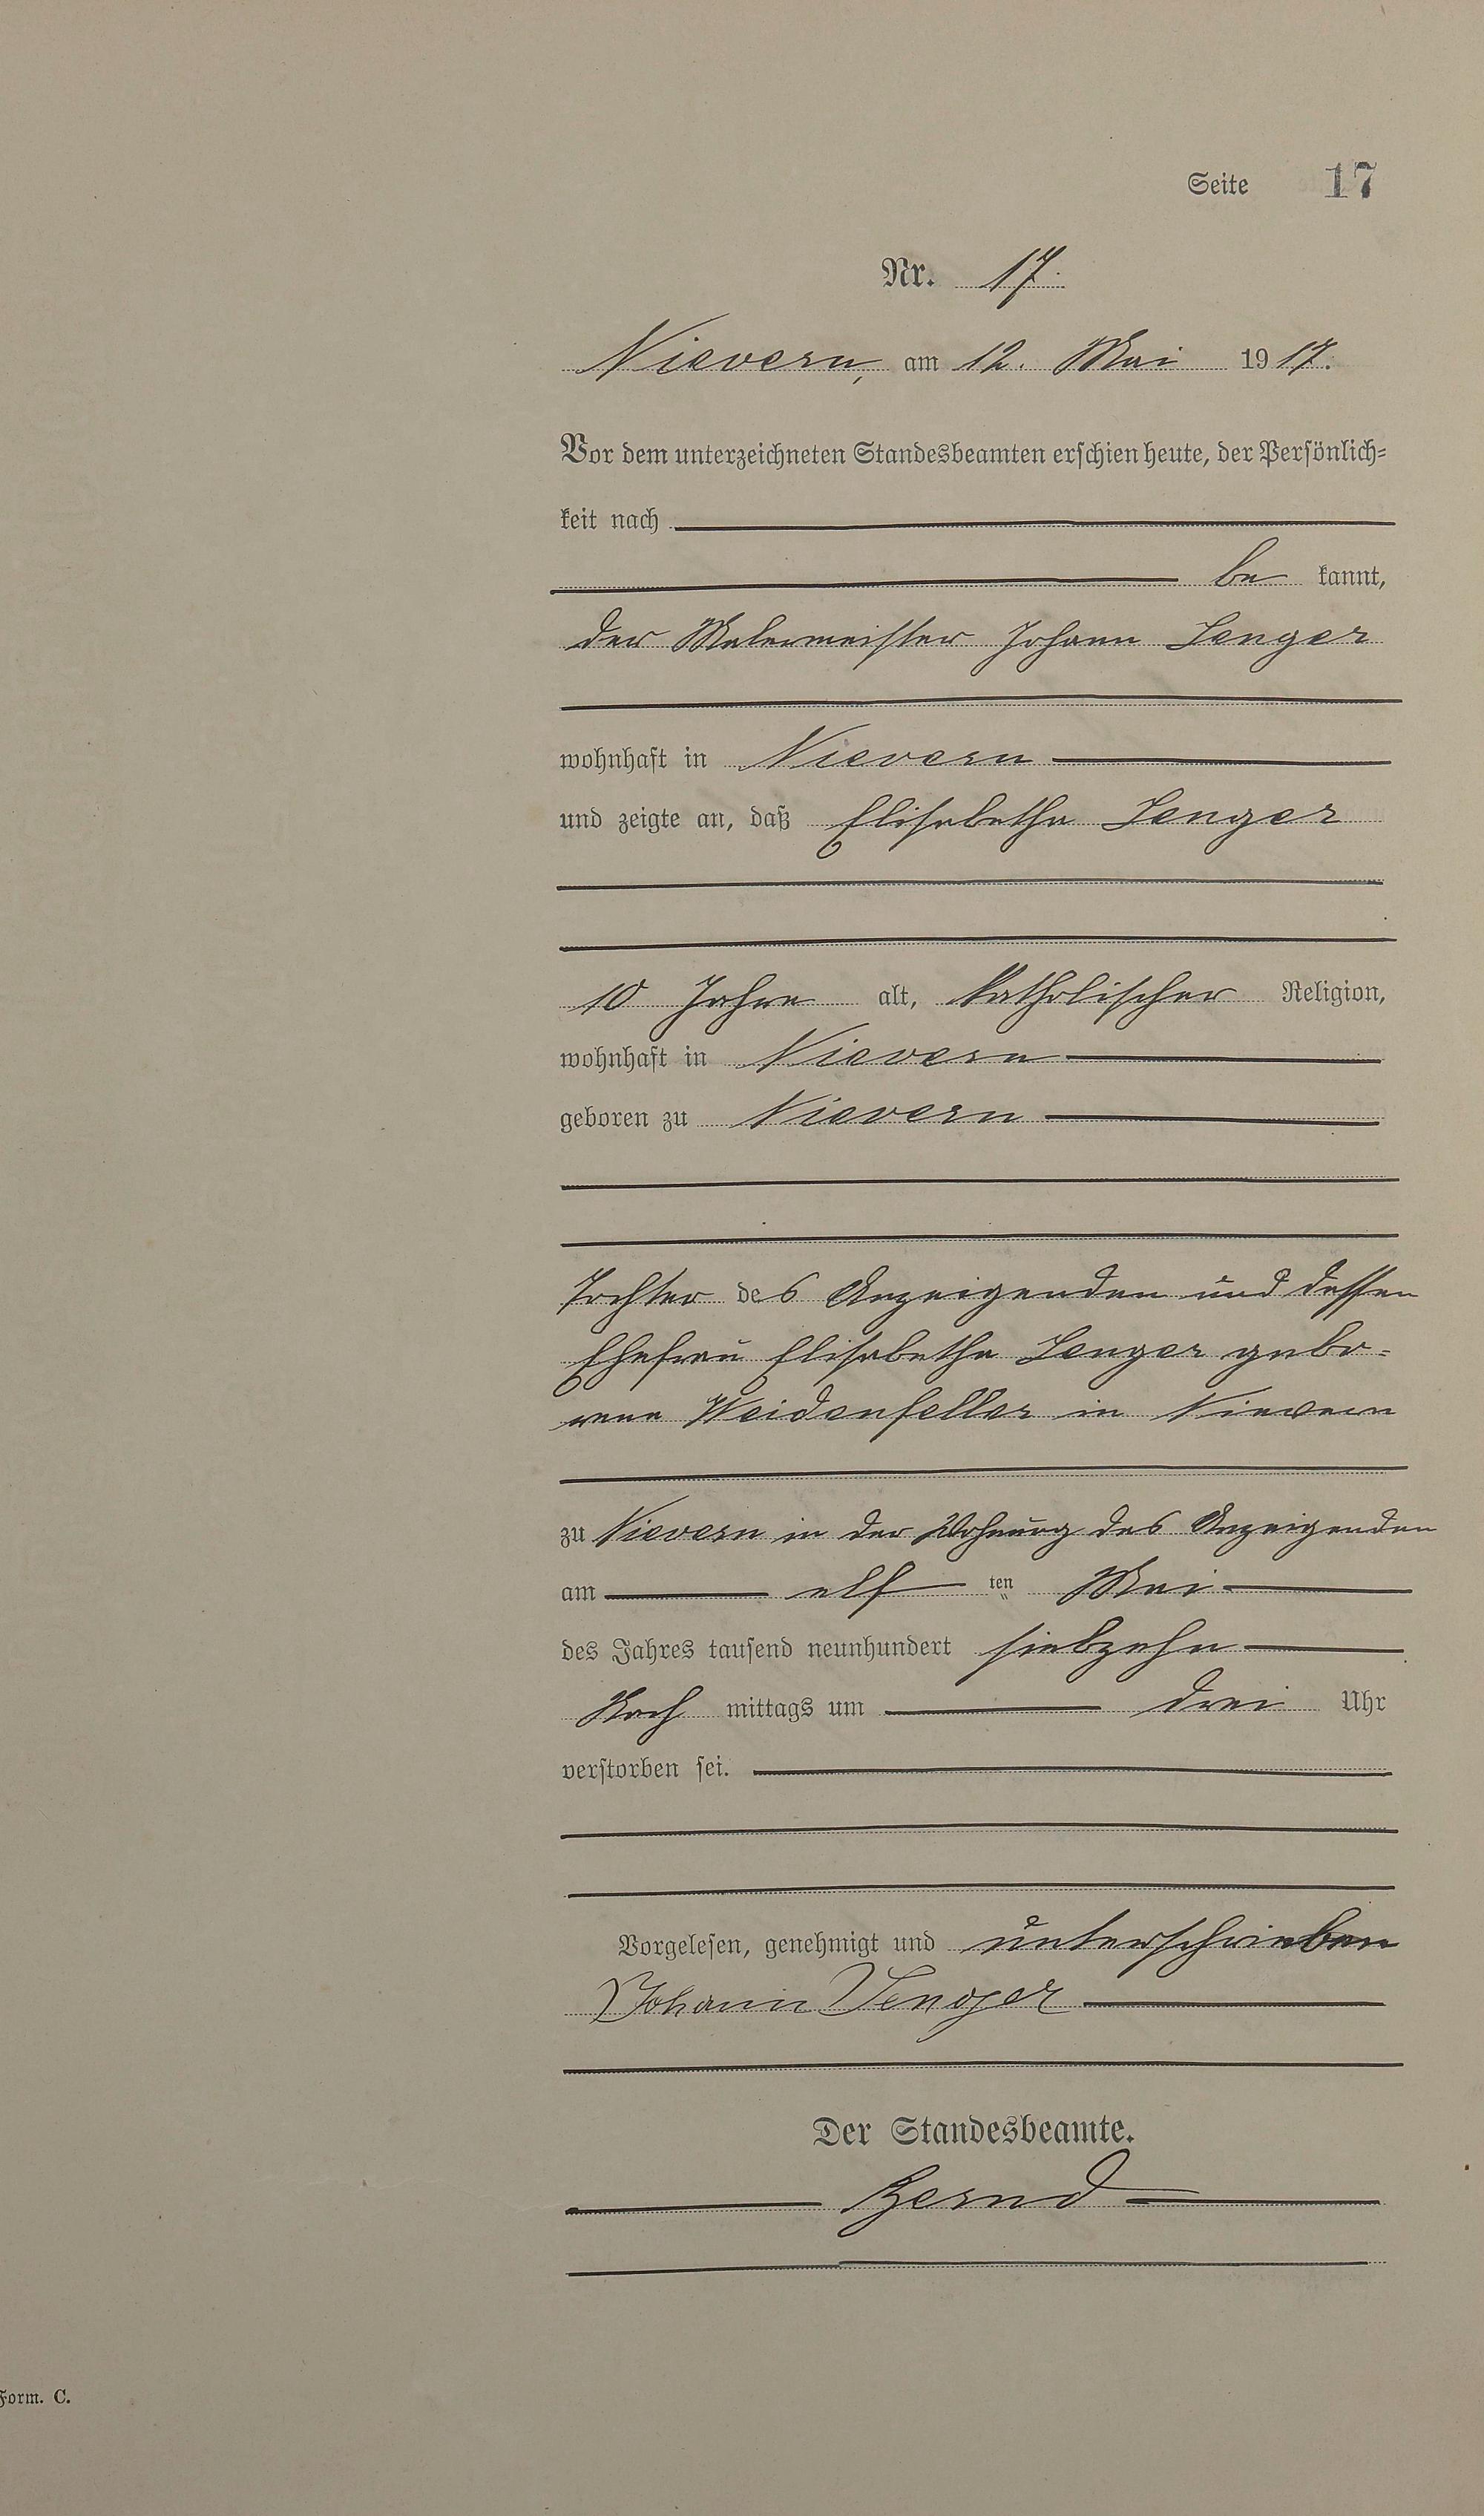 Seite 17
Nr. 17.
Nievern, am 12. Mai 1917.
Vor dem unterzeichneten Standesbeamten erschien heute, der Persönlich=
keit nach
be kannt,
der Malermeister Johann Senger
wohnhaft in Nievern
und zeigte an, daß Elisabetha Senger
10 Jahre alt, katholischer Religion,
wohnhaft in Nievern
geboren zu Nievern
Tochter des Anzeigenden und dessen
Ehefrau Elisabetha Senger gebo=
rene Weidenfeller in Nievern
zu Nievern in der Wohnung des Anzeigenden
am elf ten Mai
des Jahres tausend neunhundert siebzehn
Nach mittags um drei Uhr
verstorben sei.
Vorgelesen, genehmigt und unterschrieben
Johann Senger
Der Standesbeamte.
Bernd
Form. C.